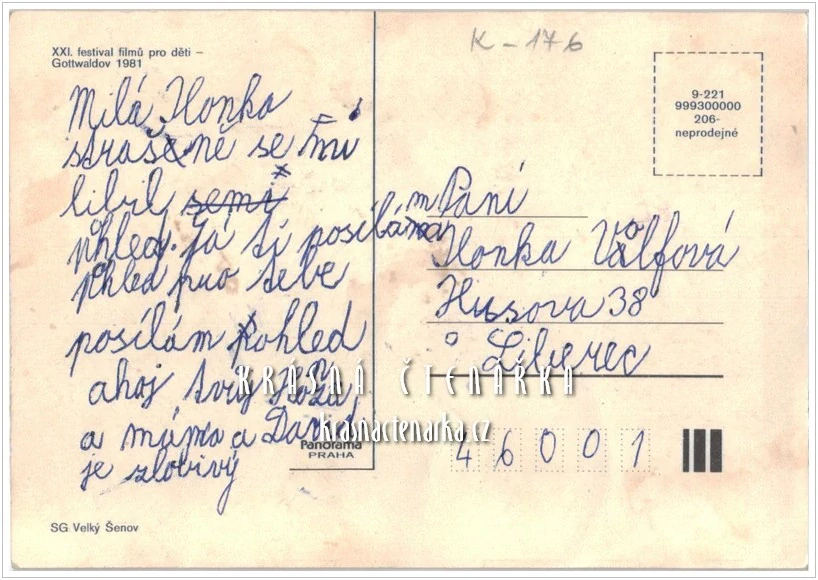 XXI. festival filmů pro děti –
Gottwaldov 1981
K-176
9-221
999300000
206-
neprodejné
Milá Ilonko
strašně se mi
líbil semi
phled. Já ti posílám
phled pro tebe
posílám Pohled
ahoj tvůj
a máma a David
je zlobivý
Paní
Ilonka Válfová
Husova 38
Liberec
46001
KRÁSNÁ ČTENÁŘKA
krasnactenarka.cz
Panorama
PRAHA
SG Velký Šenov